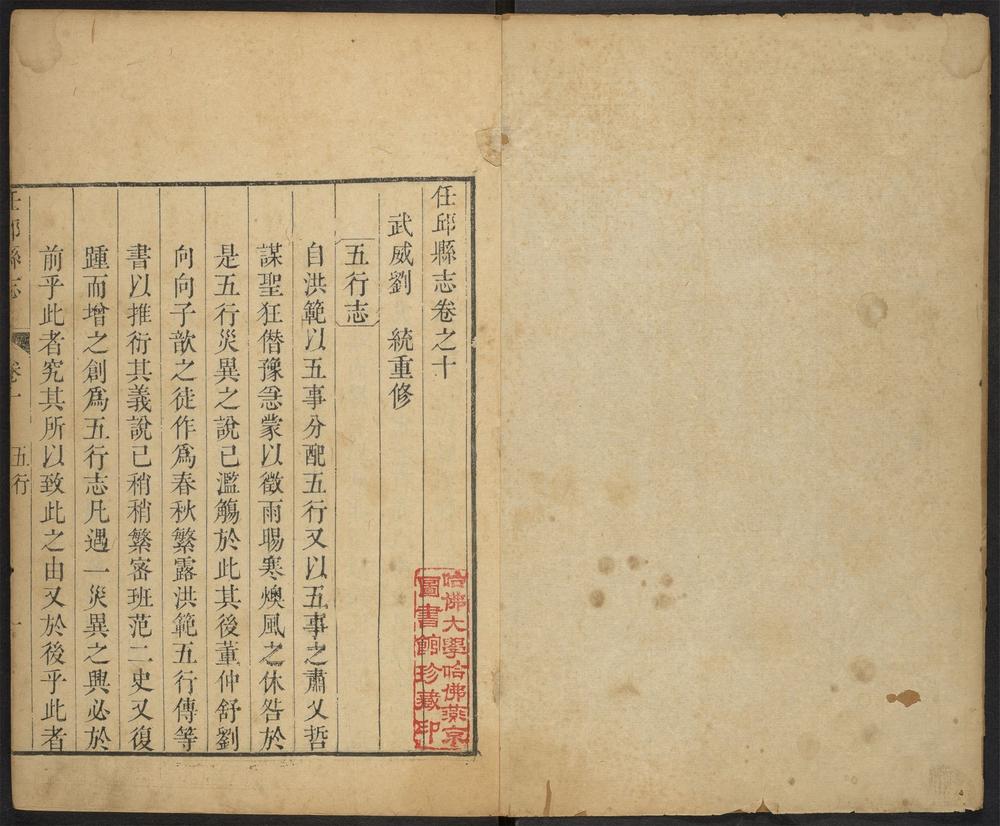 任邱縣志卷之十
武威劉 統重修
五行志
自洪範以五事分配五行又以五事之肅乂哲
謀聖狂僭豫急蒙以徵雨暘寒燠風之休咎於
是五行災異之說已濫觴於此其後董仲舒劉
向向子歆之徒作爲春秋繁露洪範五行傳等
書以推衍其義說已稍稍繁密班范二史又復
踵而增之創爲五行志凡遇一災異之興必於
前乎此者究其所以致此之由又於後乎此者
任邱縣志 卷十 五行 一
哈佛大學哈佛燕京
圖書館珍藏印